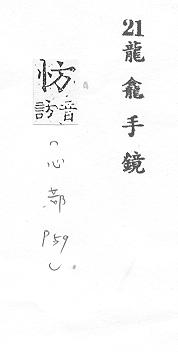 21龍龕手鏡
㤃
音訪
(心部
P59)